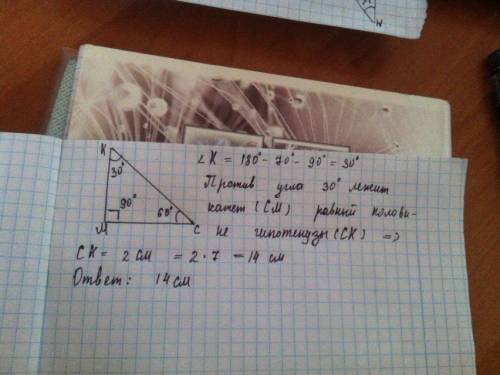 N
K
30°
90°
60°
M
C
∠K = 180° - 70° - 90° = 30°
Против угла 30° лежит
катет (СМ) равный полови-
не гипотенузы (СК) =>
СК = 2СМ = 2·7 = 14 см
Ответ: 14 см